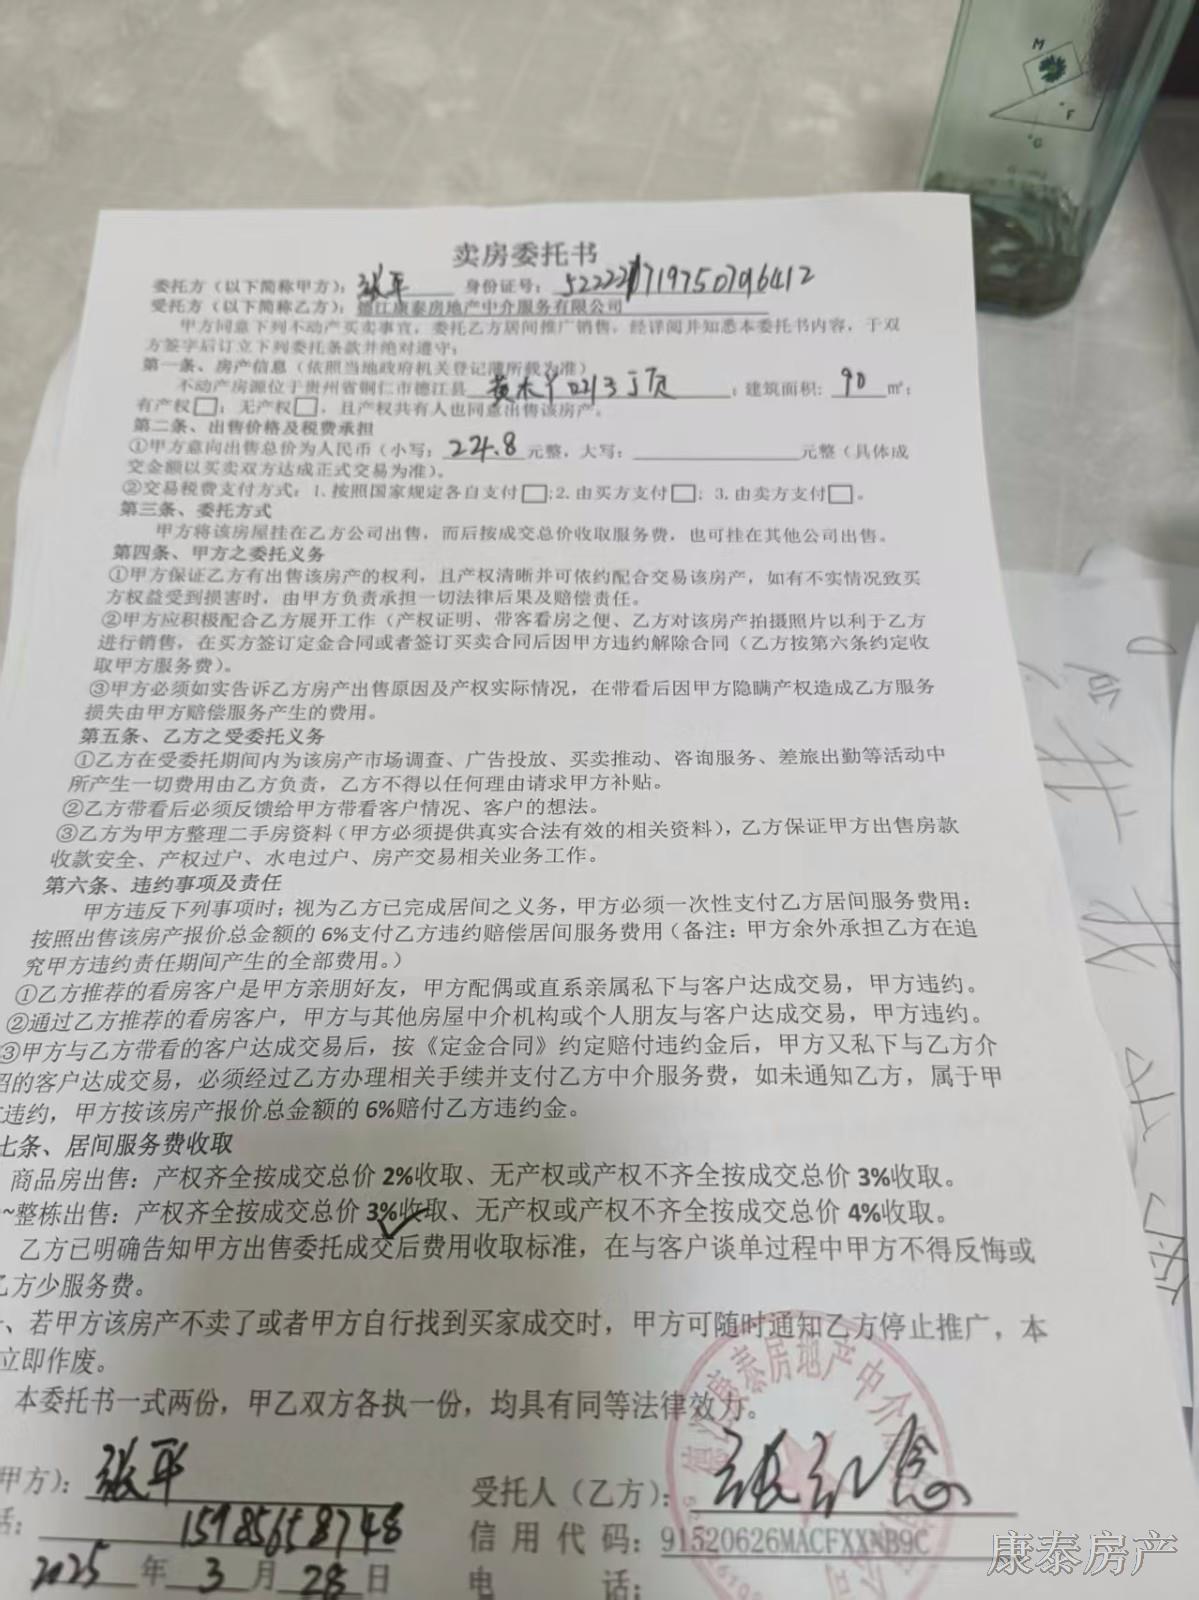 M
F
G
卖房委托书
委托方（以下简称甲方）：张平 身份证号：
受托方（以下简称乙方）：德江康泰房地产中介服务有限公司
甲方同意下列不动产买卖事宜，委托乙方居间推广销售，经详阅并知悉本委托书内容，于双
方签字后订立下列委托条款并绝对遵守：
第一条、房产信息（依照当地政府机关登记簿所载为准）
不动产房源位于贵州省铜仁市德江县 ；建筑面积：90㎡；
有产权□；无产权□，且产权共有人也同意出售该房产。
第二条、出售价格及税费承担
①甲方意向出售总价为人民币（小写：24.8元整，大写：元整（具体成
交金额以买卖双方达成正式交易为准）。
②交易税费支付方式：1.按照国家规定各自支付□；2.由买方支付□；3.由卖方支付□。
第三条、委托方式
甲方将该房屋挂在乙方公司出售，而后按成交总价收取服务费，也可挂在其他公司出售。
第四条、甲方之委托义务
①甲方保证乙方有出售该房产的权利，且产权清晰并可依约配合交易该房产，如有不实情况致买
方权益受到损害时，由甲方负责承担一切法律后果及赔偿责任。
②甲方应积极配合乙方展开工作（产权证明、带客看房之便、乙方对该房产拍摄照片以利于乙方
进行销售，在买方签订定金合同或者签订买卖合同后因甲方违约解除合同（乙方按第六条约定收
取甲方服务费）。
③甲方必须如实告诉乙方房产出售原因及产权实际情况，在带看后因甲方隐瞒产权造成乙方服务
损失由甲方赔偿服务产生的费用。
第五条、乙方之受委托义务
①乙方在受委托期间内为该房产市场调查、广告投放、买卖推动、咨询服务、差旅出勤等活动中
所产生一切费用由乙方负责，乙方不得以任何理由请求甲方补贴。
②乙方带看后必须反馈给甲方带看客户情况、客户的想法。
③乙方为甲方整理二手房资料（甲方必须提供真实合法有效的相关资料），乙方保证甲方出售房款
收款安全、产权过户、水电过户、房产交易相关业务工作。
第六条、违约事项及责任
甲方违反下列事项时；视为乙方已完成居间之义务，甲方必须一次性支付乙方居间服务费用：
按照出售该房产报价总金额的 6%支付乙方违约赔偿居间服务费用（备注：甲方余外承担乙方在追
究甲方违约责任期间产生的全部费用。）
①乙方推荐的看房客户是甲方亲朋好友，甲方配偶或直系亲属私下与客户达成交易，甲方违约。
②通过乙方推荐的看房客户，甲方与其他房屋中介机构或个人朋友与客户达成交易，甲方违约。
③甲方与乙方带看的客户达成交易后，按《定金合同》约定赔付违约金后，甲方又私下与乙方介
绍的客户达成交易，必须经过乙方办理相关手续并支付乙方中介服务费，如未通知乙方，属于甲
违约，甲方按该房产报价总金额的 6%赔付乙方违约金。
七条、居间服务费收取
商品房出售：产权齐全按成交总价 2%收取、无产权或产权不齐全按成交总价 3%收取。
~整栋出售：产权齐全按成交总价 3%收取、无产权或产权不齐全按成交总价 4%收取。
乙方已明确告知甲方出售委托成交后费用收取标准，在与客户谈单过程中甲方不得反悔或
乙方少服务费。
、若甲方该房产不卖了或者甲方自行找到买家成交时，甲方可随时通知乙方停止推广，本
立即作废。
本委托书一式两份，甲乙双方各执一份，均具有同等法律效力。
甲方）：张平
受托人（乙方）：
话：15985658748
信用代码：91520626MACFXXNB9C
2025年3月28日
电话：
康泰房产